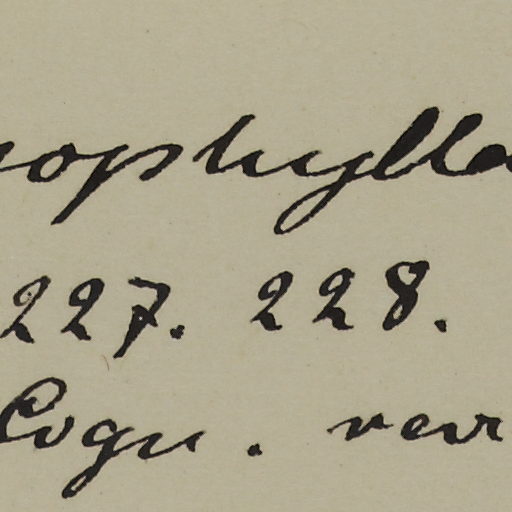 ophylla
227. 228.
Cogn. var